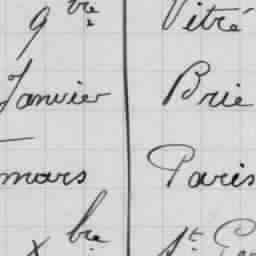 9bre Vitré
Janvier Brie
mars Paris
xbre St